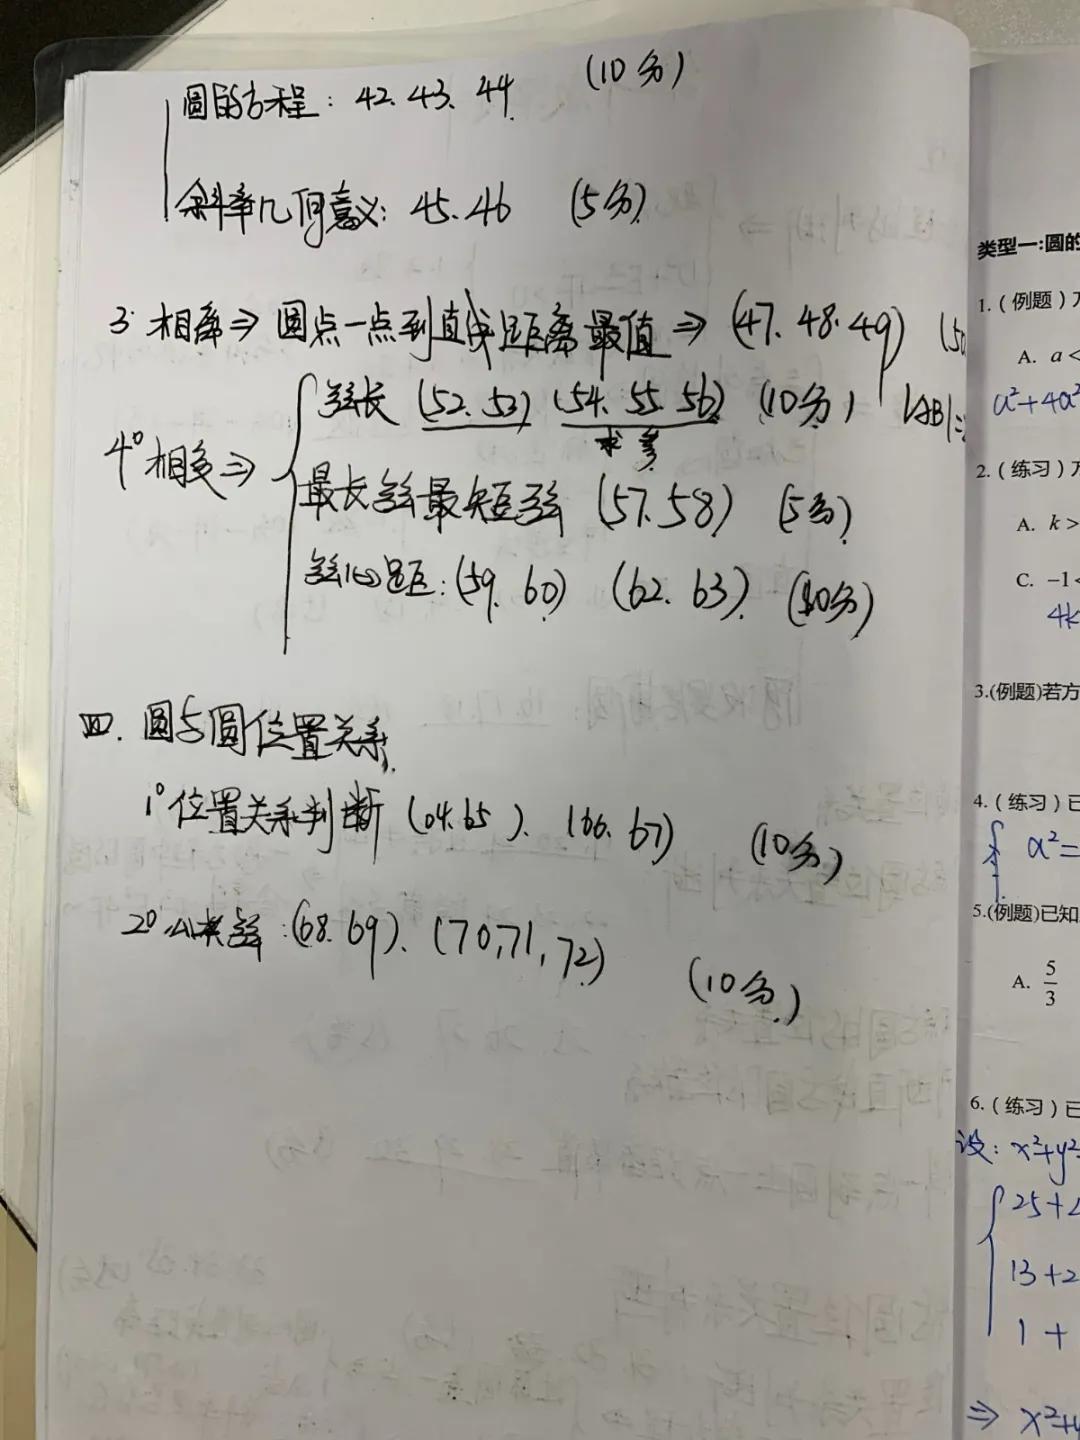 圆的方程: 42. 43. 44 (10分)
斜率几何意义: 45. 46 (5分)
3. 相离⇒圆点一点到直线距离最值⇒(47. 48. 49) (5
4° 相交⇒
弦长 (52. 53) (54. 55. 56) (10分) |AB|=
求参
最长弦最短弦 (57. 58) (5分)
弦心距: (59. 60) (62. 63) (10分)
四. 圆与圆位置关系
1° 位置关系判断 (64. 65). (66. 67) (10分)
2° 公共弦: (68. 69). (70, 71, 72) (10分)
类型一:圆的
1.(例题)
A. a<
a²+4a²
2.(练习)
A. k>
C. -1<
4k
3.(例题)若方
4.(练习)已
a²=
5.(例题)已知
A. 5/3
6.(练习)已
设: x²+y²
25+
13+2
1+
⇒ x²+y